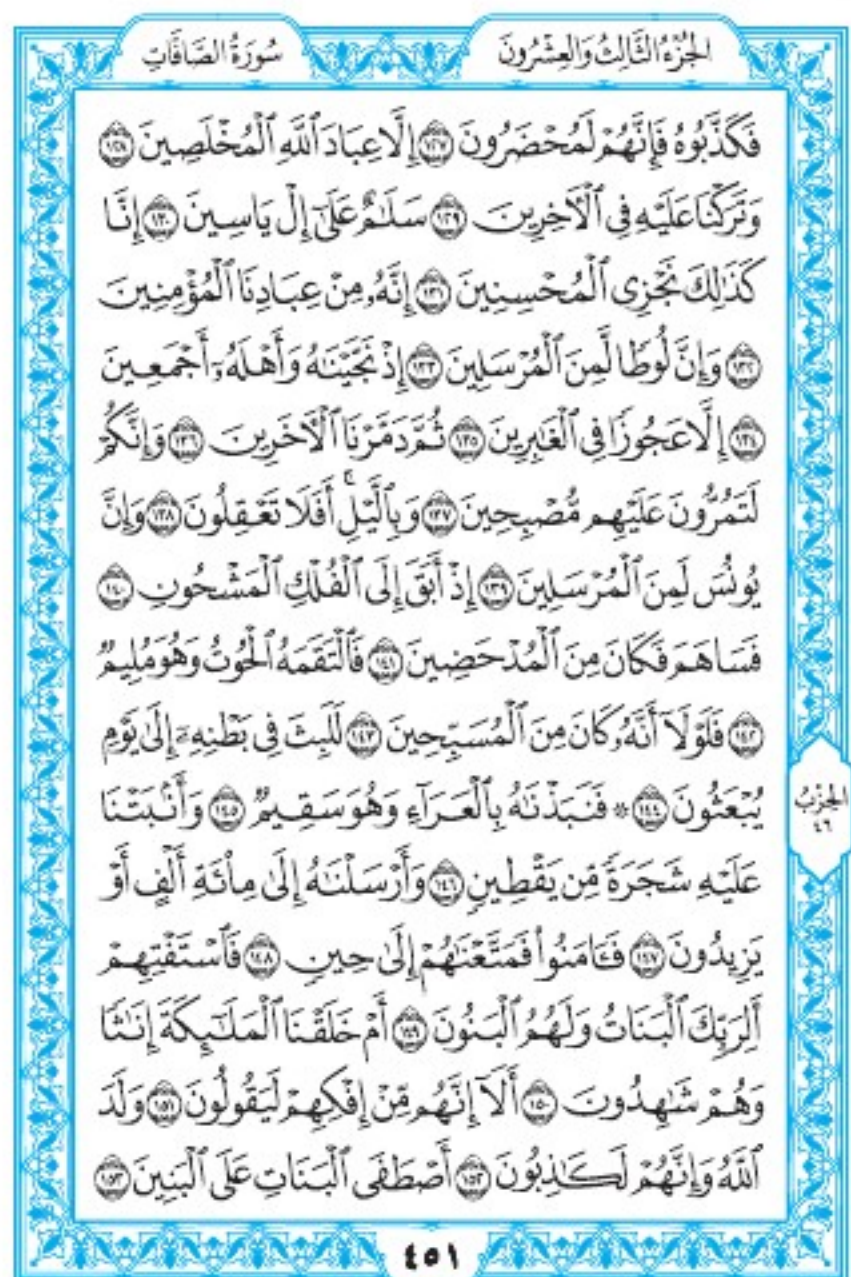 الجُزْءُ الثَّالِثُ وَالعِشْرُونَ
سُورَةُ الصَّافَّاتِ
فَكَذَّبُوهُ فَإِنَّهُمْ لَمُحْضَرُونَ ١٢٧ إِلَّا عِبَادَ ٱللَّهِ ٱلْمُخْلَصِينَ ١٢٨
وَتَرَكْنَا عَلَيْهِ فِي ٱلْآخِرِينَ ١٢٩ سَلَـٰمٌ عَلَىٰٓ إِلْ يَاسِينَ ١٣٠ إِنَّا
كَذَٰلِكَ نَجْزِي ٱلْمُحْسِنِينَ ١٣١ إِنَّهُۥ مِنْ عِبَادِنَا ٱلْمُؤْمِنِينَ
١٣٢ وَإِنَّ لُوطًا لَّمِنَ ٱلْمُرْسَلِينَ ١٣٣ إِذْ نَجَّيْنَـٰهُ وَأَهْلَهُۥٓ أَجْمَعِينَ
١٣٤ إِلَّا عَجُوزًا فِي ٱلْغَـٰبِرِينَ ١٣٥ ثُمَّ دَمَّرْنَا ٱلْآخَرِينَ ١٣٦ وَإِنَّكُمْ
لَتَمُرُّونَ عَلَيْهِم مُّصْبِحِينَ ١٣٧ وَبِٱلَّيْلِ ۗ أَفَلَا تَعْقِلُونَ ١٣٨ وَإِنَّ
يُونُسَ لَمِنَ ٱلْمُرْسَلِينَ ١٣٩ إِذْ أَبَقَ إِلَى ٱلْفُلْكِ ٱلْمَشْحُونِ ١٤٠
فَسَاهَمَ فَكَانَ مِنَ ٱلْمُدْحَضِينَ ١٤١ فَٱلْتَقَمَهُ ٱلْحُوتُ وَهُوَ مُلِيمٌ
١٤٢ فَلَوْلَآ أَنَّهُۥ كَانَ مِنَ ٱلْمُسَبِّحِينَ ١٤٣ لَلَبِثَ فِي بَطْنِهِۦٓ إِلَىٰ يَوْمِ
يُبْعَثُونَ ١٤٤ ۞ فَنَبَذْنَـٰهُ بِٱلْعَرَآءِ وَهُوَ سَقِيمٌ ١٤٥ وَأَنۢبَتْنَا
عَلَيْهِ شَجَرَةً مِّن يَقْطِينٍ ١٤٦ وَأَرْسَلْنَـٰهُ إِلَىٰ مِا۟ئَةِ أَلْفٍ أَوْ
يَزِيدُونَ ١٤٧ فَـَٔامَنُوا۟ فَمَتَّعْنَـٰهُمْ إِلَىٰ حِينٍ ١٤٨ فَٱسْتَفْتِهِمْ
أَلِرَبِّكَ ٱلْبَنَاتُ وَلَهُمُ ٱلْبَنُونَ ١٤٩ أَمْ خَلَقْنَا ٱلْمَلَـٰٓئِكَةَ إِنَـٰثًا
وَهُمْ شَـٰهِدُونَ ١٥٠ أَلَآ إِنَّهُم مِّنْ إِفْكِهِمْ لَيَقُولُونَ ١٥١ وَلَدَ
ٱللَّهُ وَإِنَّهُمْ لَكَـٰذِبُونَ ١٥٢ أَصْطَفَى ٱلْبَنَاتِ عَلَى ٱلْبَنِينَ ١٥٣
الحِزْبُ
٤٦
٤٥١